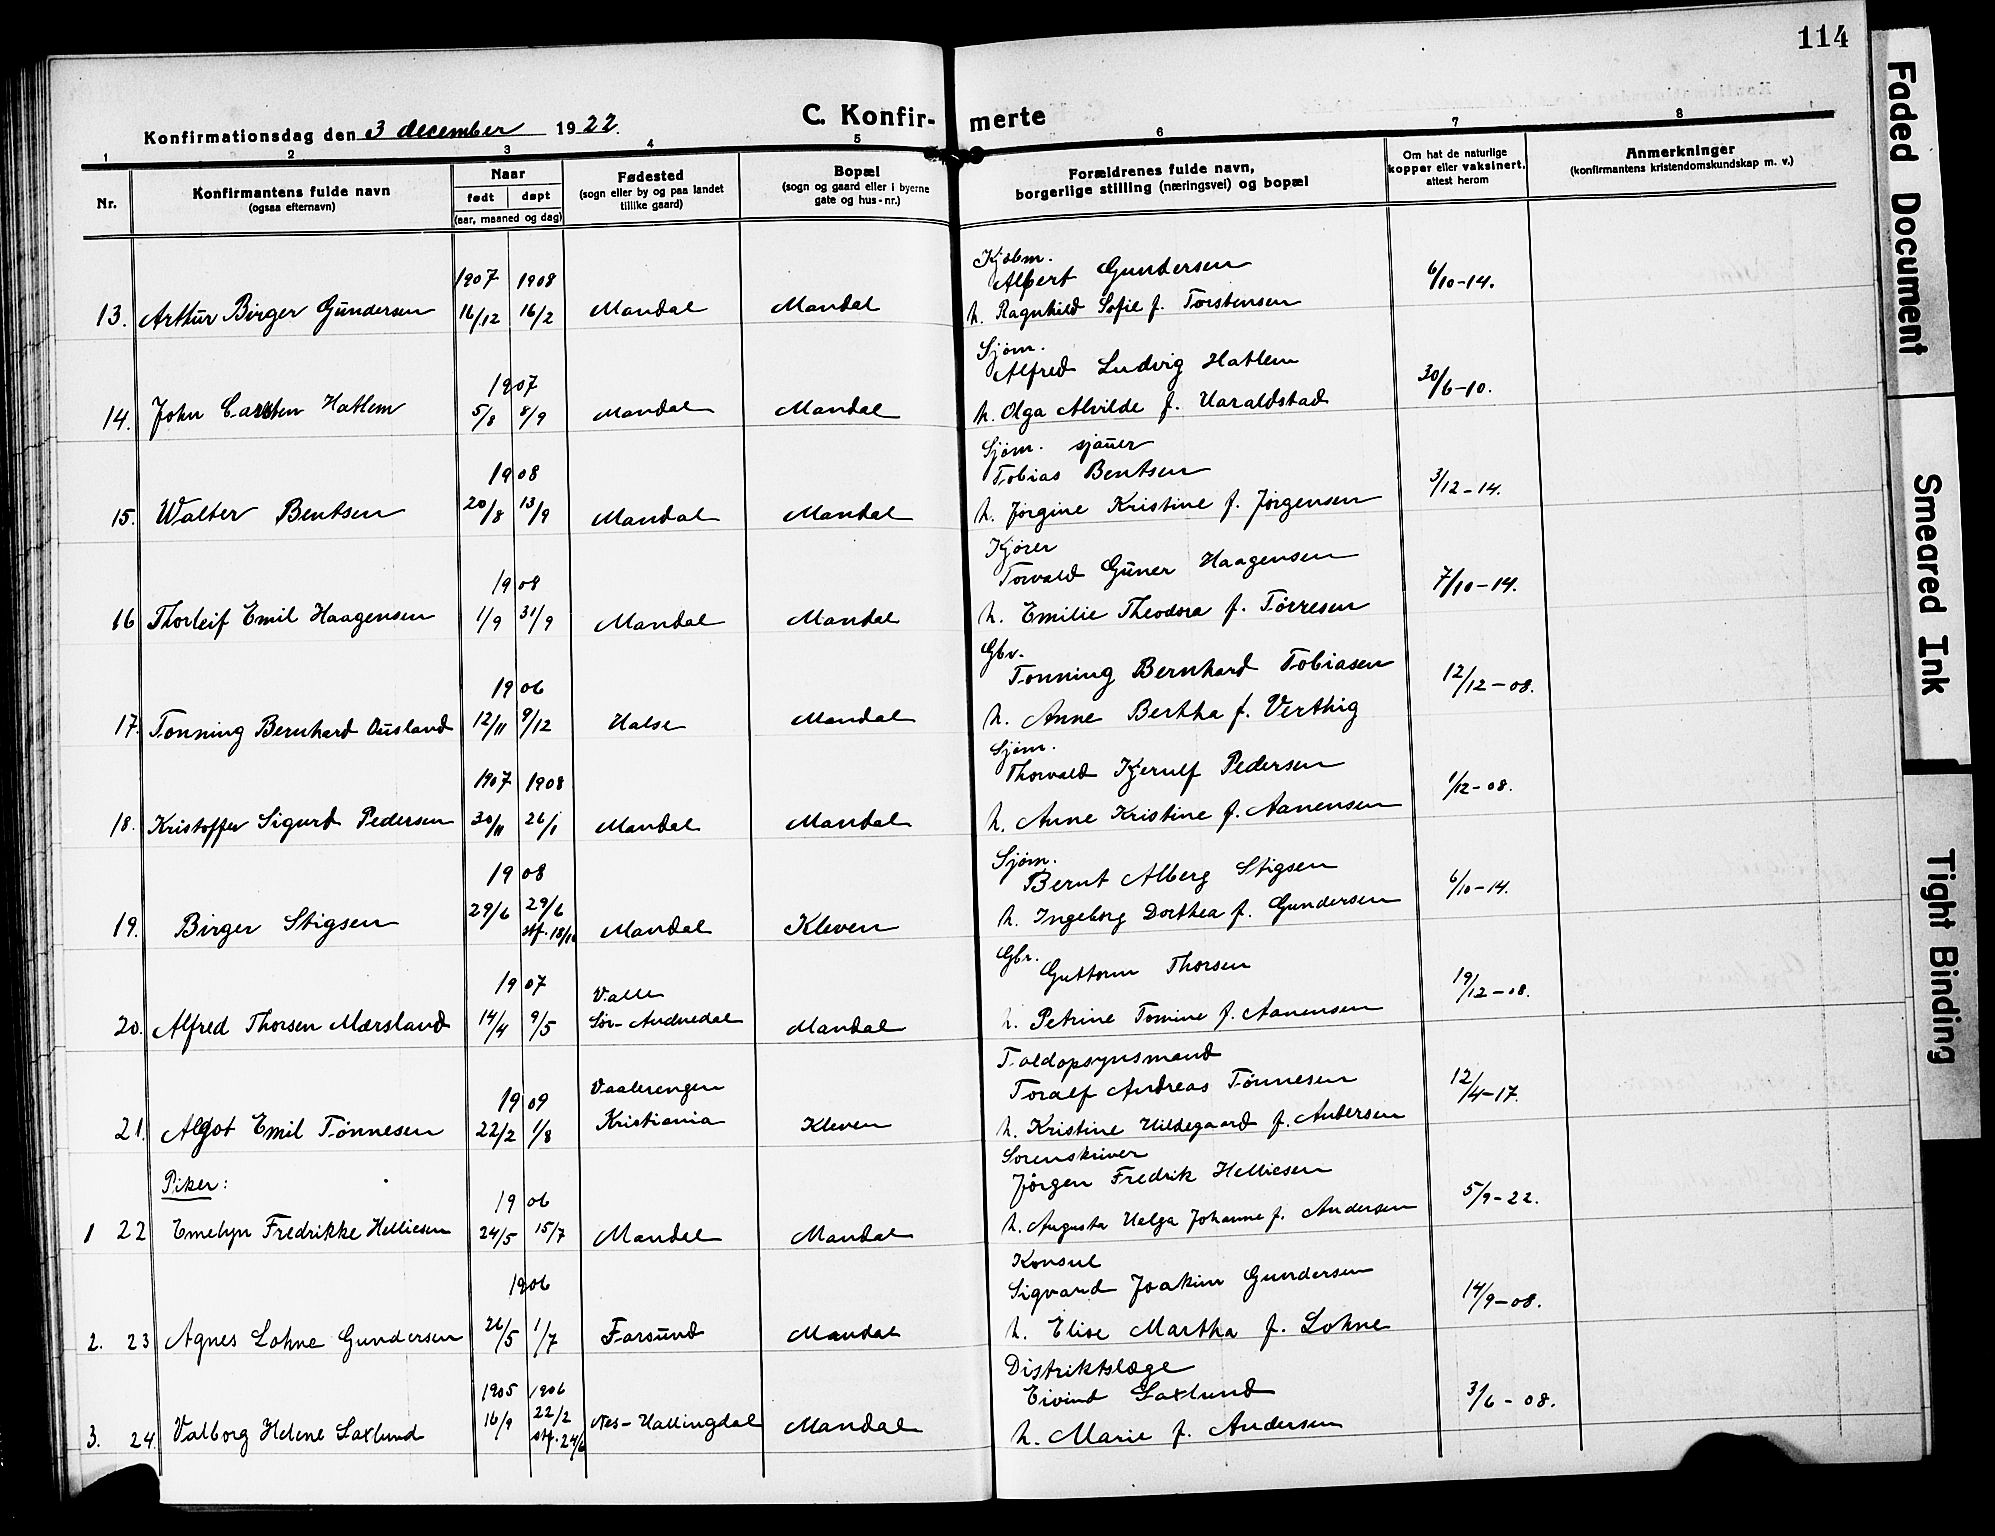 114
C. Konfir- merte
Konfirmationsdag den 3 december 1922.
1 2 3 4 5 6 7 8
Nr.
Konfirmantens fulde navn
(ogsaa efternavn)
Naar
født døpt
(aar, maaned og dag)
Fødested
(sogn eller by og paa landet
tillike gaard)
Bopæl
(sogn og gaard eller i byerne
gate og hus-nr.)
Forældrenes fulde navn,
borgerlige stilling (næringsvei) og bopæl
Om hat de naturlige
kopper eller vaksinert.
attest herom
Anmerkninger
(konfirmantens kristendomskundskap m. v.)
Kjøbm.
1907 1908 Albert Gundersen 6/10-14.
13. Arthur Birger Gundersen 16/12 16/2 Mandal Mandal h. Ragnhild Sofie f. Torstensen
Sjøm.
1907 Alfred Ludvig Hatlem 30/6-10.
14. John Carsten Hatlem 5/8 8/9 Mandal Mandal h. Olga Alvilde f. Haraldstad
Sjøm. sjauer
1908 Tobias Bentsen 3/12-14.
15. Walter Bentsen 20/8 13/9 Mandal Mandal h. Jørgine Kristine f. Jørgensen
Kjører
1908 Torvald Guner Haagensen 7/10-14.
16 Thorleif Emil Haagensen 1/9 31/9 Mandal Mandal h. Emilie Theodora f. Tørresen
Gbr.
1906 Tonning Bernhard Tobiasen 12/12-08.
17. Tonning Bernhard Ousland 12/11 9/12 Halse Mandal h. Anne Bertha f. Verthig
Sjøm.
1907 1908 Thorvald Kjerulf Pedersen 1/12-08.
18. Kristoffer Sigurd Pedersen 30/11 26/1 Mandal Mandal h. Anne Kristine f. Aanensen
Sjøm.
1908 Bernt Alberg Stigsen 6/10-14.
19. Birger Stigsen 29/6 29/6 Mandal Kleven h. Ingeborg Dorthea f. Gundersen
stf. 18/10
Gbr.
1907 Valle Guttorm Thorsen 19/12-08.
20. Alfred Thorsen Mærsland 14/4 9/5 Sør-Audnedal Mandal h. Petrine Tomine f. Aanensen
Toldopsynsmand
1909 Vaalerengen Toralf Andreas Tønnesen 12/4-17.
21. Algot Emil Tønnesen 22/2 1/8 Kristiania Kleven h. Kristine Hildegaard f. Andersen
Piker:
Sorenskriver
1906 Jørgen Fredrik Helliesen 5/9-22.
1 22 Emelyn Fredrikke Helliesen 24/5 15/7 Mandal Mandal h. Augusta Helga Johanne f. Andersen
Konsul
1906 Sigvard Joakim Gundersen 14/9-08.
2. 23 Agnes Lohne Gundersen 26/5 1/7 Farsund Mandal h. Elise Martha f. Lohne
Distriktslæge
1905 1906 Eivind Saxlund 3/6-08.
3. 24. Valborg Helene Saxlund 16/9 22/2 Nes-Hallingdal Mandal h. Marie f. Andersen
stf. 24/6
Faded Document
Smeared Ink
Tight Binding